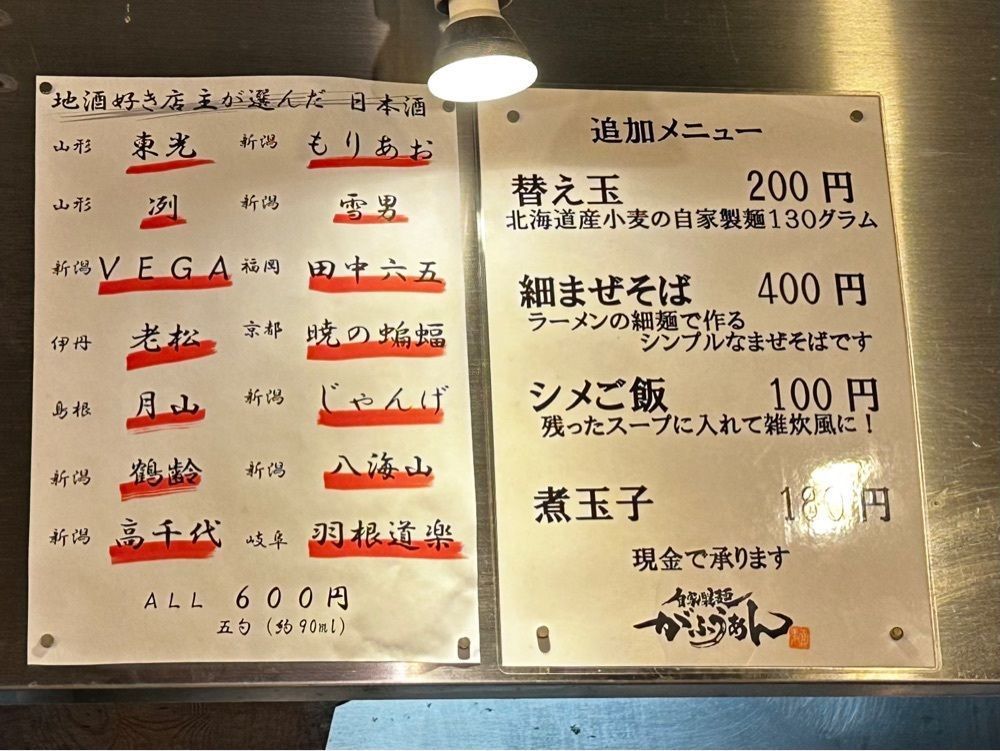 地酒好き店主が選んだ 日本酒
山形 東光 新潟 もりあお
山形 冽 新潟 雪男
新潟 VEGA 福岡 田中六五
伊丹 老松 京都 暁の蝙蝠
島根 月山 新潟 じゃんげ
新潟 鶴齢 新潟 八海山
新潟 高千代 岐阜 羽根道楽
ALL 600円
五勺(約90ml)
追加メニュー
替え玉 200円
北海道産小麦の自家製麺130グラム
細まぜそば 400円
ラーメンの細麺で作る
シンプルなまぜそばです
シメご飯 100円
残ったスープに入れて雑炊風に!
煮玉子 180円
現金で承ります
自家製麺
がふうあん